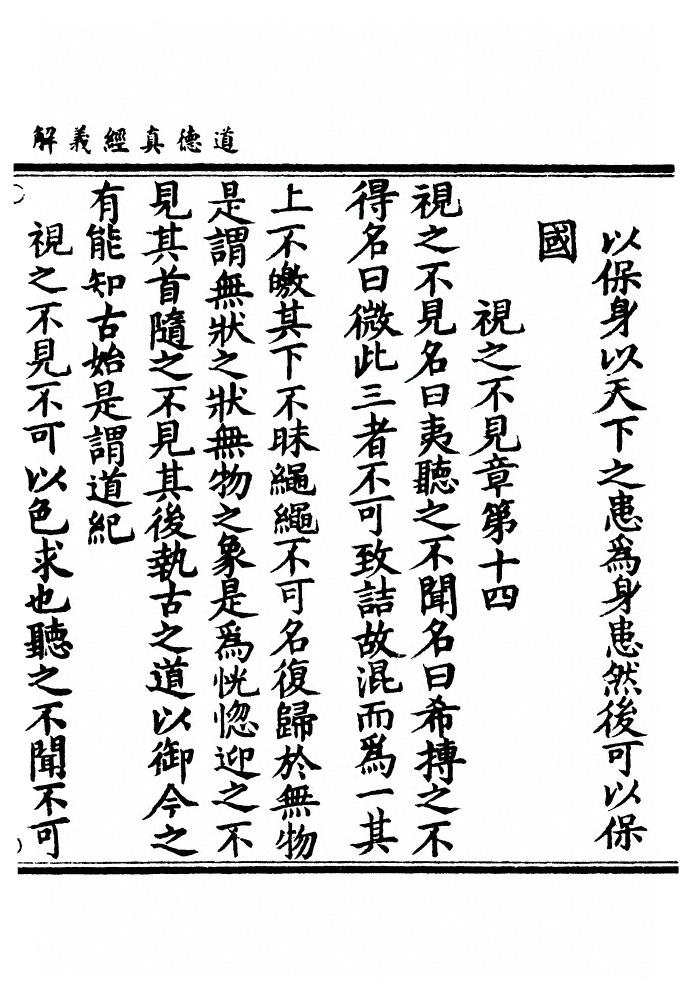 道德真經義解
以保身以天下之患為身患然後可以保
國
視之不見章第十四
視之不見名曰夷聽之不聞名曰希搏之不
得名曰微此三者不可致詰故混而為一其
上不皦其下不昧繩繩不可名復歸於無物
是謂無狀之狀無物之象是為恍惚迎之不
見其首隨之不見其後執古之道以御今之
有能知古始是謂道紀
視之不見不可以色求也聽之不聞不可